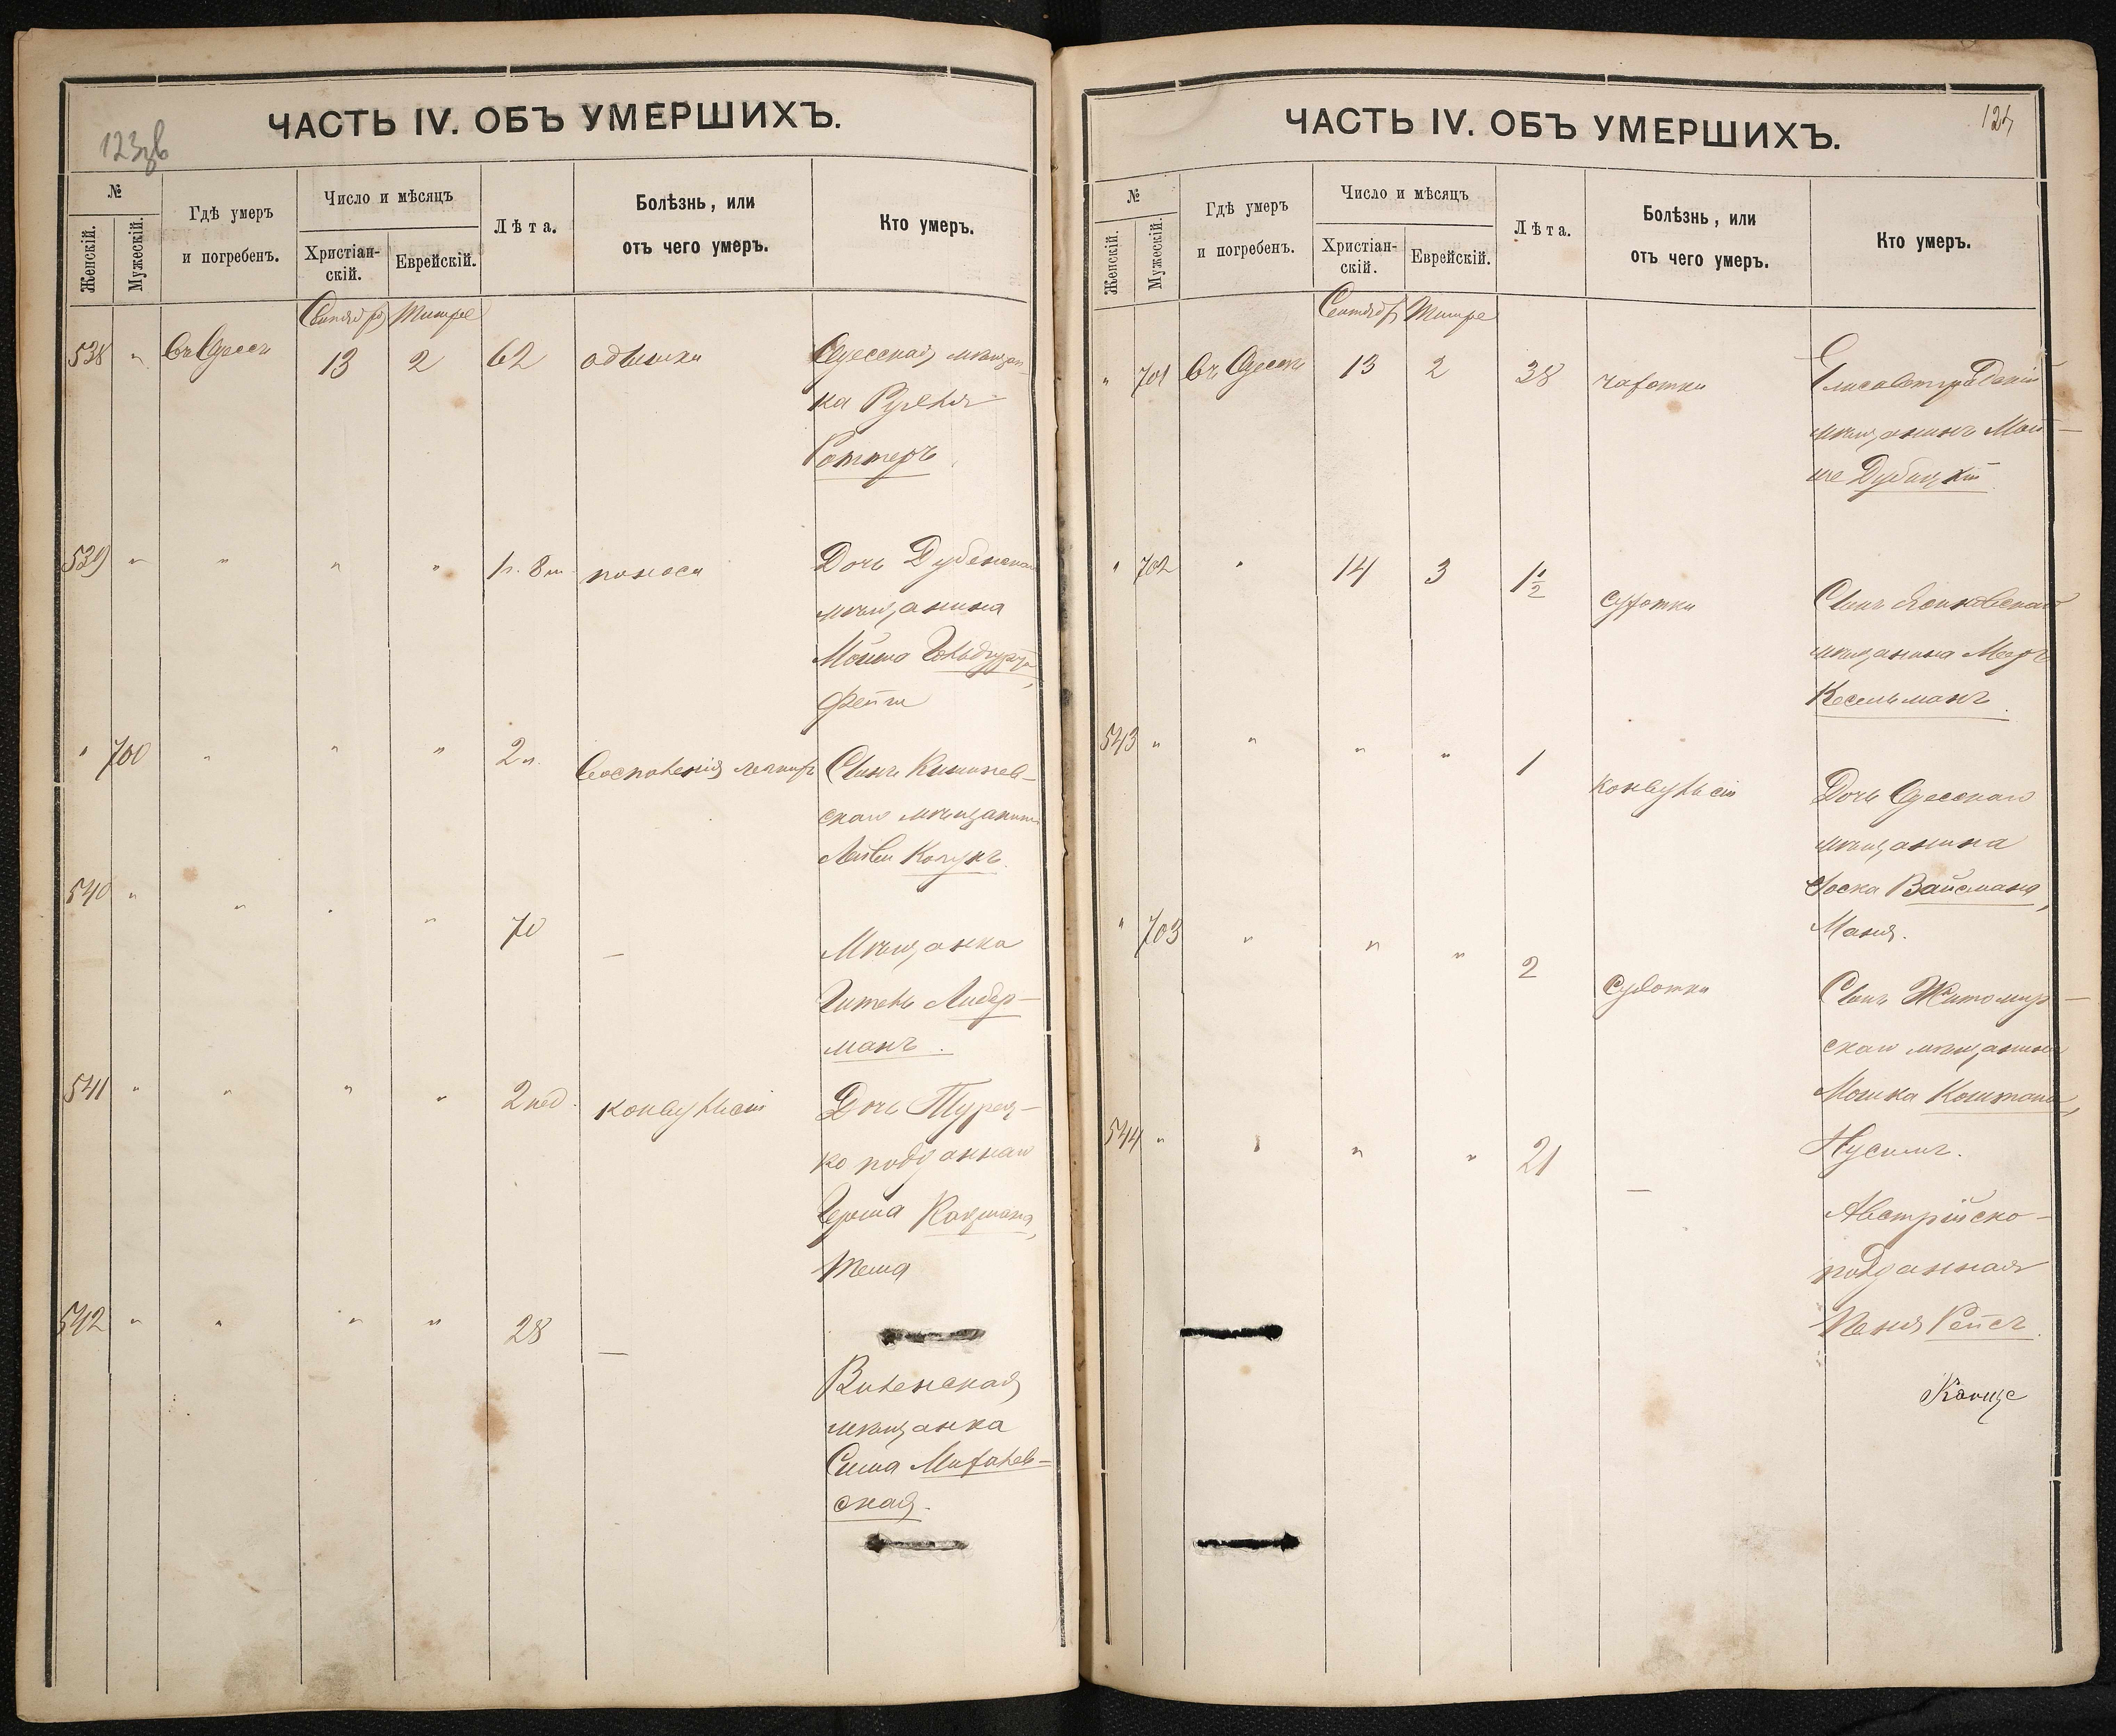 123 об
ЧАСТЬ IV. ОБЪ УМЕРШИХЪ.
№
Женскій.
Мужескій.
Гдѣ умеръ
и погребенъ.
Число и мѣсяцъ
Христіан-
скій.
Еврейскій.
Лѣта.
Болѣзнь, или
отъ чего умеръ.
Кто умеръ.
Сентябр Тишре
538 " въ Одессѣ 13 2 62 одышки Одесская мѣщан-
ка Рухля
Роттеръ
539 " " " " 1 г. 8 м. поноса Дочь Дубенскаго
мѣщанина
Мошко
Фейги
" 700 " " " 2 г. воспаленія легкихъ Сынъ Кишинев-
скаго мѣщанина
Лейви
540 " " " " 70 — Мѣщанка
Гитель Либер-
манъ.
541 " " " " 2 нед. конвульсіи Дочь Турец-
ко подданнаго
Герша
542 " " " " 28 —
Виленская
мѣщанка
Сима Михалев-
ская.
124
ЧАСТЬ IV. ОБЪ УМЕРШИХЪ.
№
Женскій.
Мужескій.
Гдѣ умеръ
и погребенъ.
Число и мѣсяцъ
Христіан-
скій.
Еврейскій.
Лѣта.
Болѣзнь, или
отъ чего умеръ.
Кто умеръ.
Сентябр Тишре
" 701 въ Одессѣ 13 2 38 чахотки
мѣщанинъ Мой-
ше Дубицкій
" 702 " 14 3 1 1/2 сухотки Сынъ
мѣщанина Мееръ
Кесельманъ.
543 " " " " 1 конвульсіи Дочь Одесскаго
мѣщанина
Іоска Вайсмана,
Маня.
" 703 " " " 2 сухотки Сынъ Житомир-
скаго мѣщанина
Мошка
Нусимъ.
544 " " " " 21 —
Австрійско-
подданная
Пеня Рейсъ.